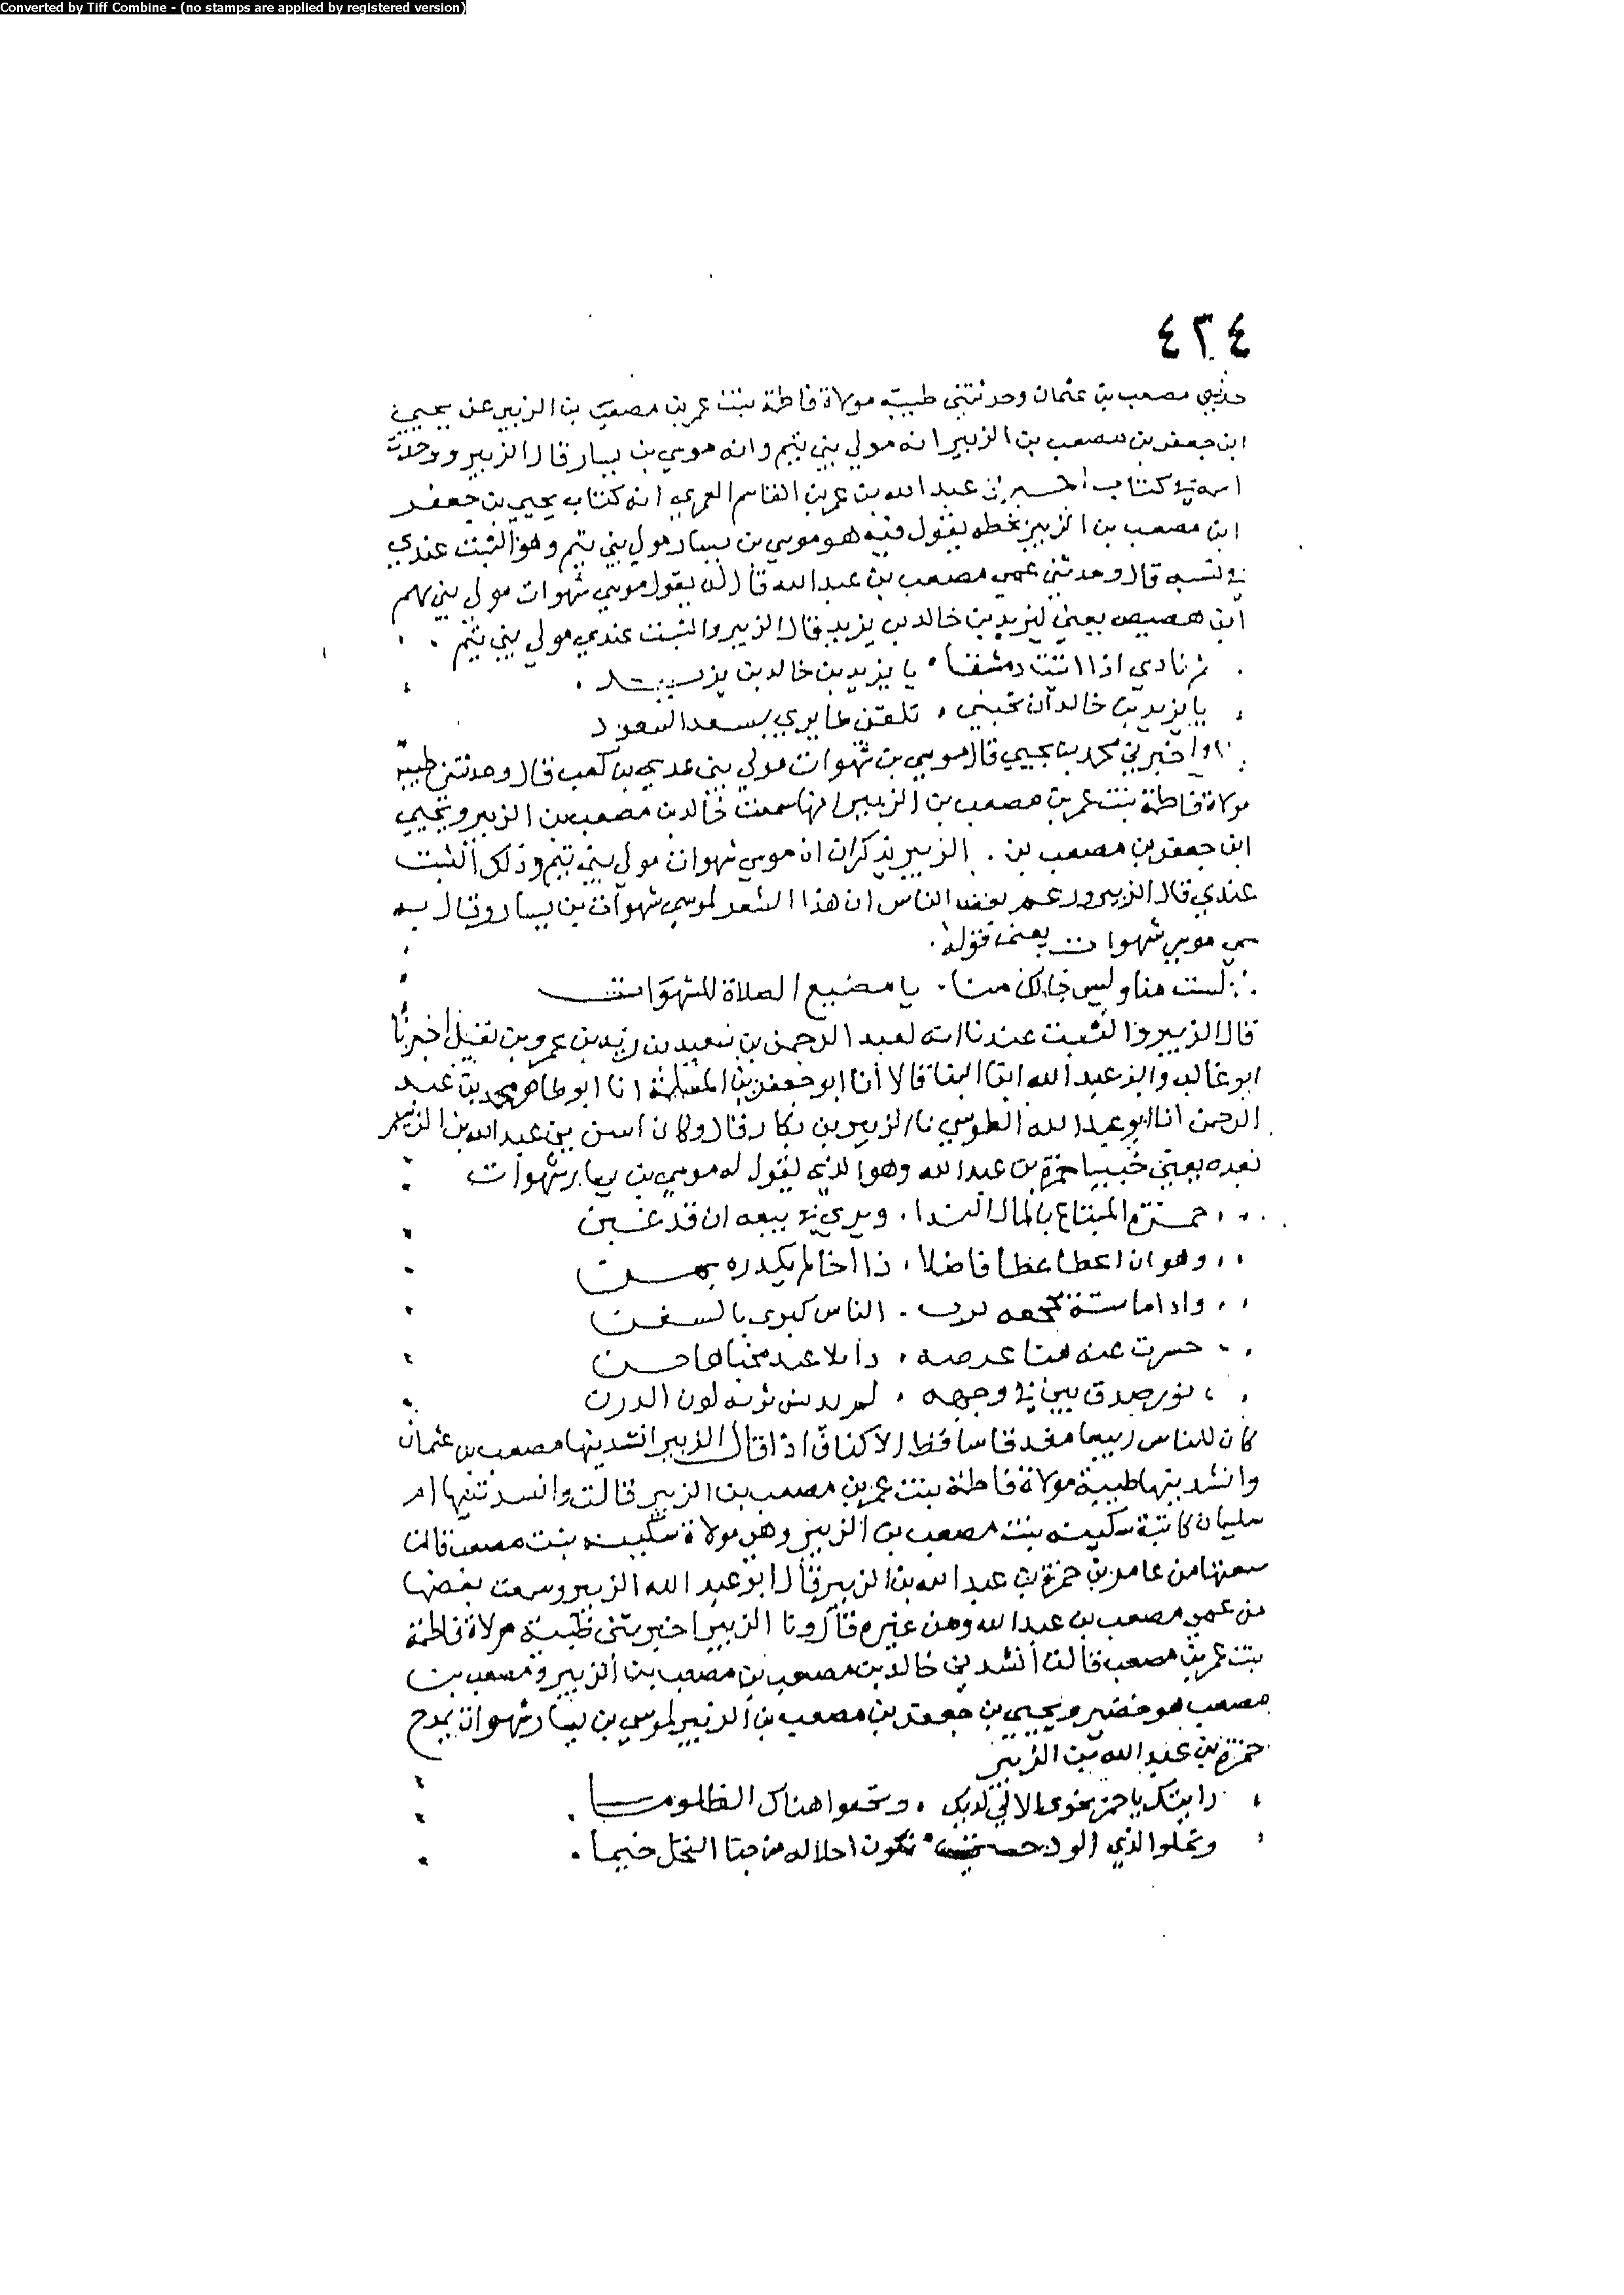 Converted by Tiff Combine - (no stamps are applied by registered version)
٤٢٤
حدثني مصعب بن عثمان وحدثتني طبيبة مولاة فاطمة بنت عمر بن مصعب بن الزبير عن يحيى
ابن جعفر بن مصعب بن الزبير انه مولي بني تيم وانه موسي بن يسار قال الزبير ووجدت
في كتاب عبد الله بن عمر بن القاسم العمري انه كتاب يحيي بن جعفر
ابن مصعب بن الزبير بخطه يقول فيه هو موسي بن يسار مولي بني تيم وهو الثبت عندي
في نسبه قال وحدثني عمي مصعب بن عبد الله قال له يقول موسي شهوات مولي بني سهم
ابن هصيص يعني ليزيد بن خالد بن يزيد قال الزبير والثبت عندي مولي بني تيم
ثم نادي اذا اتيت دمشقا يا يزيد بن خالد بن يزيد
يا يزيد بن خالد ان تجبني تلقني طايري بسعد السعود
واخبرني محمد بن يحيي قال موسي بن شهوات مولي بني عدي بن كعب قال وحدثتني طبيبة
مولاة فاطمة بنت عمر بن مصعب بن الزبير انها سمعت خالد بن مصعب بن الزبير ويحيي
ابن جعفر بن مصعب بن الزبير يذكران ان موسي شهوات مولي بني تيم وذلك الثبت
عندي قال الزبير وزعم بعض الناس ان هذا الشعر لموسي شهوات بن يسار وقال به
سمي موسي شهوات يعني قوله
لست منا وليس خالك منا يا مضيع الصلاة للشهوات
قال الزبير والثبت عندنا انه لعبد الرحمن بن سعيد بن زيد بن عمرو بن نفيل اخبرنا
ابو غالب وابو عبد الله ابنا البنا قالا أنا ابو جعفر بن المسلمة انا ابو طاهر محمد بن عبد
الرحمن انا ابو عبد الله الطوسي نا الزبير بن بكار قال وكان اسن بني عبد الله بن الزبير
بعده يعني خبيبا حمزة بن عبد الله وهو الذي يقول له موسي بن يسار شهوات
حمزة المبتاع بالمال الندا ويري في بيعه ان قد غبن
وهو ان اعطا عطا فاضلا ذا اخا لم يكدره بمن
واذا ما سنة مجحفه الناس كبري بالسفن
حسرت عنه
نور صدق بين في وجهه لم يدنس ثوبه لون الدرن
كان للناس ربيعا مغدقا ساقط الاكناف اذا قال الزبير انشدنيها مصعب بن عثمان
وانشدتنيها طبيبة مولاة فاطمة بنت عمر بن مصعب بن الزبير قالت وانشدتنيها ام
سليمان كاتبة سكينه بنت مصعب بن الزبير وهي مولاة سكينه بنت مصعب قالت
سمعتها من عامر بن حمزة بن عبد الله بن الزبير قال ابو عبد الله الزبير وسمعت بعضها
من عمي مصعب بن عبد الله ومن غيره قال ونا الزبير اخبرتني ظبية مولاة فاطمة
بنت عمر بن مصعب قالت أنشدني خالد بن مصعب بن مصعب بن الزبير ومصعب بن
مصعب هو خضير ويحيي بن جعفر بن مصعب بن الزبير لموسي بن يسار شهوات يمدح
حمزة بن عبد الله بن الزبير
رايتك يا حمز لديك هناك الظلوما
وتحلوا لذي الود تكون احلا له من جنا النحل خيما